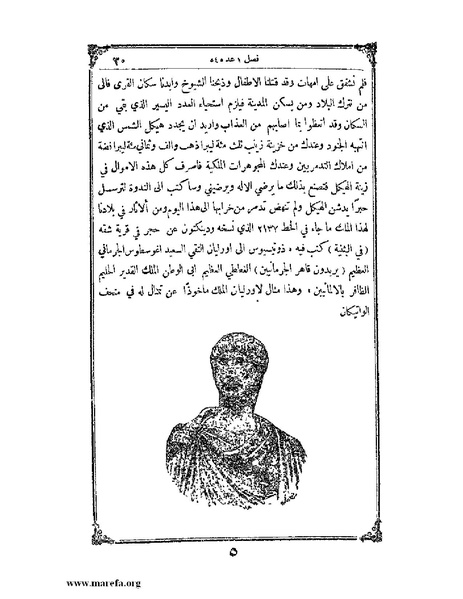 فصل ١ عد ٥٤٠ ٣٥
فلم نشفق على امهات وقد قتلنا الاطفال وذبحنا الشيوخ وابدنا سكان القرى فالى
من نترك البلاد ومن يسكن المدينة فيلزم استحياء العدد اليسير الذي بقي من
السكان وقد اتعظوا بما اصابهم من العذاب واريد ان يجدد هيكل الشمس الذي
انتهبه الجنود وعندك من خزينة زينب ثلث مئة ليبرا ذهب والف وثماني مئة ليبرا فضة
من املاك التدمريين وعندك المجوهرات الملكية فاصرف كل هذه الاموال في
زينة الهيكل فتصنع بذلك ما يرضي الاله ويرضيني وسأكتب الى الندوة لترسل
حبرًا يدشن الهيكل ولم تنهض تدمر من خرابها الى هذا اليوم ومن الآثار في بلادنا
لهذا الملك ما جاء في الخط ٢١٣٧ الذي نسخه ودينكتون عن حجر في قرية شقه
(في البثنية) كتب فيه ، ذوتيسيوس الى اورليان التقي السعيد اغوسطوس الجرماني
العظيم (يريدون قاهر الجرمانيين) الغطاطي العظيم ابي الوطن الملك القدير الحليم
الظافر بالالمانيين ، وهذا مثال لاورليان الملك ماخوذًا عن تمثال له في متحف
الواتيكان
٥
www.marefa.org